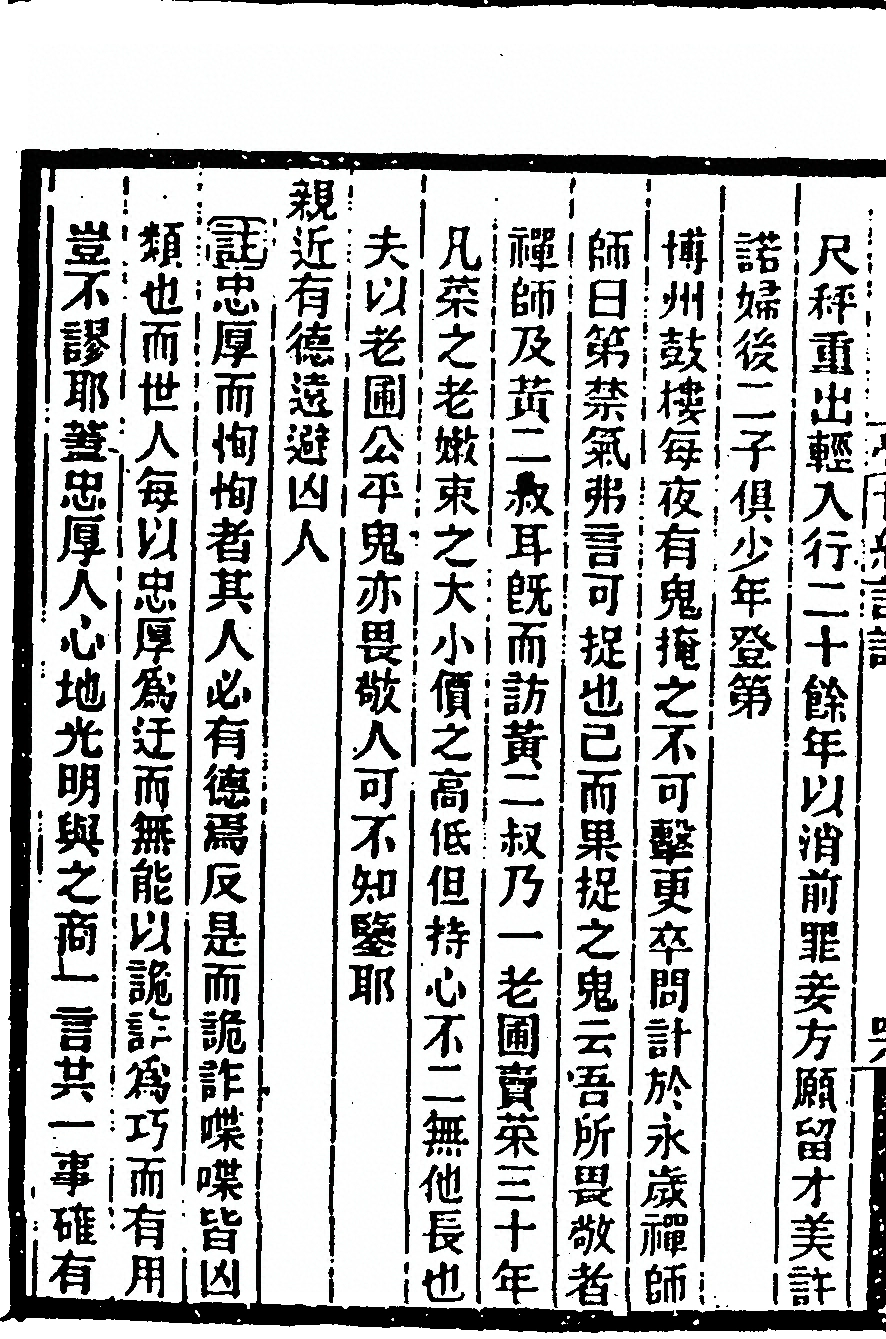 尺秤重出輕入行二十餘年以消前罪妾方願留才美許
諾婦後二子俱少年登第
博州鼓樓每夜有鬼掩之不可擊更卒問計於永歲禪師
師曰第禁氣弗言可捉也己而果捉之鬼云吾所畏敬者
禪師及黃二叔耳旣而訪黃二叔乃一老圃賣菜三十年
凡菜之老嫩束之大小價之高低但持心不二無他長也
夫以老圃公平鬼亦畏敬人可不知鑒耶
親近有德遠避凶人
註忠厚而恂恂者其人必有德焉反是而詭詐喋喋皆凶
類也而世人每以忠厚爲迂而無能以詭詐爲巧而有用
豈不謬耶蓋忠厚人心地光明與之商一言共一事確有